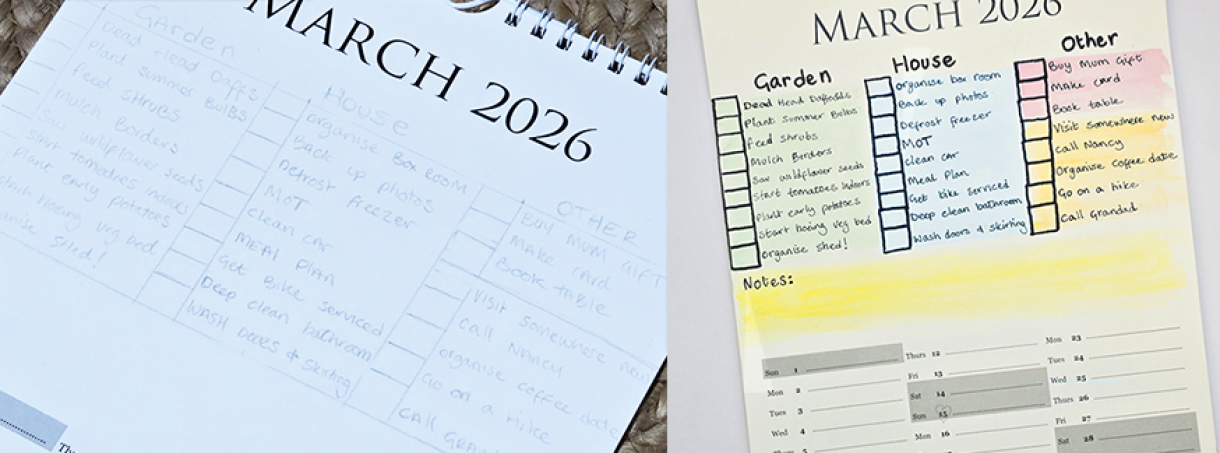 MARCH 2026
Garden
Dead Head Daffs
Plant summer Bulbs
feed shrubs
Mulch Borders
wildflower seeds
start tomatoes indoors
Plant early potatoes
hoeing veg bed
shed!
HOUSE
organise Box Room
Back up photos
Defrost freezer
MOT
Clean car
MEAL PLAN
Get Bike serviced
Deep clean bathroom
WASH DOORS & Skirting
OTHER
BUY MUM GIFT
MAKE CARD
BOOK TABLE
Visit somewhere new
Call Nancy
organise coffee date
Go on a hike
CALL
MARCH 2026
Garden
Dead Head Daffodils
Plant Summer Bulbs
feed shrubs
Mulch Borders
Sow wildflower seeds
start tomatoes indoors
Plant early potatoes
start hoeing veg bed
organise shed!
House
organise box room
Back up photos
Defrost freezer
MOT
clean car
Meal Plan
Get bike serviced
Deep clean bathroom
Wash doors & skirting
Other
Buy Mum Gift
Make card
Book table
Visit somewhere new
Call Nancy
Organise coffee date
Go on a hike
Call Grandad
Notes:
Sun 1
Mon 2
Tues 3
Wed 4
Thurs 12
Fri 13
Sat 14
Sun 15
Mon 16
Mon 23
Tues 24
Wed 25
Thurs 26
Fri 27
Sat 28